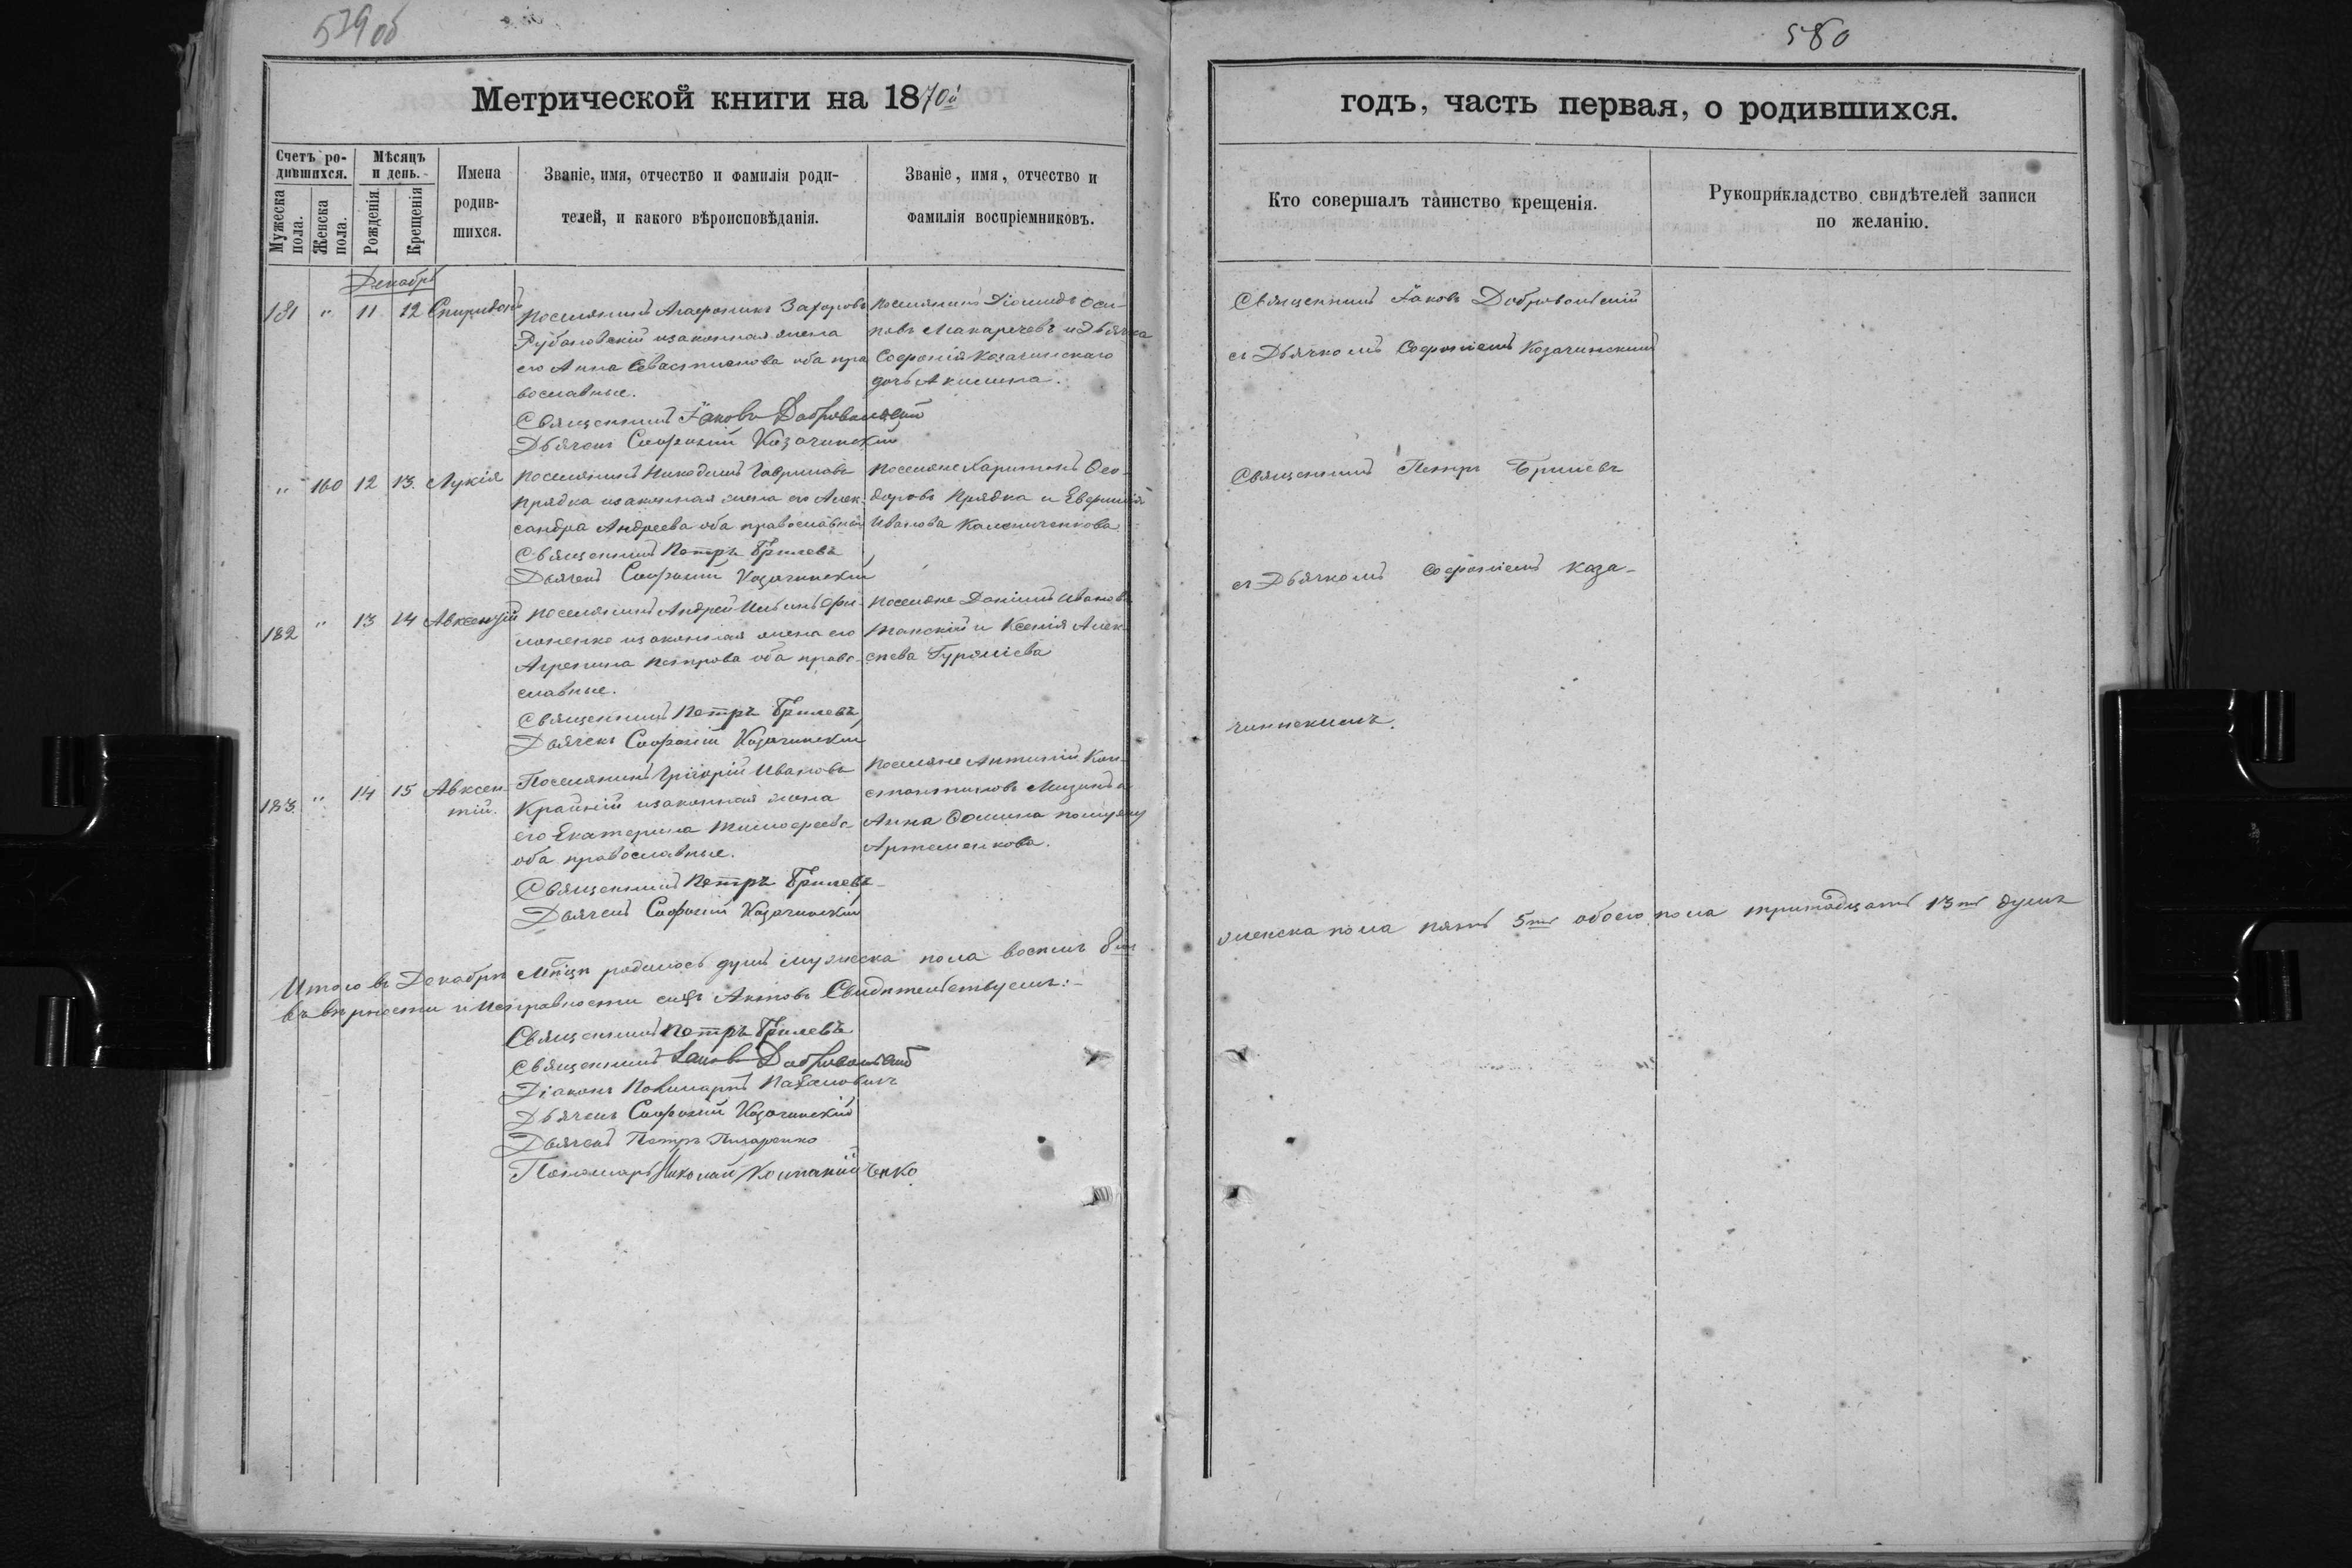 579 об
580
Метрической книги на 1870й
годъ, часть первая, о родившихся.
Счетъ родившихся.
Мужеска пола.
Женска пола.
Мѣсяцъ и день.
Рожденія
Крещенія
Имена родившихся.
Званіе, имя, отчество и фамилія родителей, и какого вѣроисповѣданія.
Званіе, имя, отчество и фамилія воспріемниковъ.
Кто совершалъ таинство крещенія.
Рукоприкладство свидѣтелей записи по желанію.
Декабрь
181 " 11 12 Спиридонъ
Поселянинъ Агафоникъ Захаровъ
Рубановскій изаконная жена
его Анна Севастианова оба пра
вославные.
Священникъ Іаковъ Добровольскій
Дьячекъ Софроній Казачинскій
Поселянинъ Діомидъ Оси-
повъ Макаречевъ и Дьячка
Софронія Казачинскаго
дочь Акилина.
Священникъ Іаковъ Добровольскій
съ Дьячкомъ Софроніемъ Казачинскимъ
" 160 12 13. Лукія
Поселянинъ Никодимъ Гавриловъ
Прядка изаконная жена его Алек-
сандра Андреева оба православные
Священникъ Петръ Брилевъ
Дьячекъ Софроній Казачинскій
Поселяне Харитонъ Ѳео-
доровъ Прядка и Евфимія
Иванова Калениченкова
Священникъ Петръ Брилевъ
съ Дьячкомъ Софроніемъ Каза-
чинскимъ.
182 " 13 14 Авксентій
Поселянинъ Андрей Ильинъ Фи-
лоненко изаконная жена его
Агрепина Петрова оба право-
славные.
Священникъ Петръ Брилевъ
Дьячекъ Софроній Казачинскій
Поселяне Даніилъ Ивановъ
Танскій и Ксенія Алек-
сѣева
183. " 14 15 Авксен-
тій.
Поселянинъ Григорій Ивановъ
Крайній изаконная жена
его Екатерина Тимофеева
оба православные.
Священникъ Петръ Брилевъ
Дьячекъ Софроній Казачинскій
Поселяне Антипій Кон-
стантиновъ Мизинъ и
Анна Ѳомина по мужу
Артеменкова.
Итого въ Декабрѣ Мѣсяцѣ родилось душъ мужеска пола восемь 8мь
женска пола пять 5ть обоего пола тринадцать 13ть душъ
въ вѣрности и исправности сихъ Актовъ Свидѣтельствуемъ:-
Священникъ Петръ Брилевъ
Священникъ Іаковъ Добровольскій
Діаконъ Поликарпъ
Дьячекъ Софроній Казачинскій
Дьячекъ Петръ Писаренко
Пономарь Николай Компанійченко